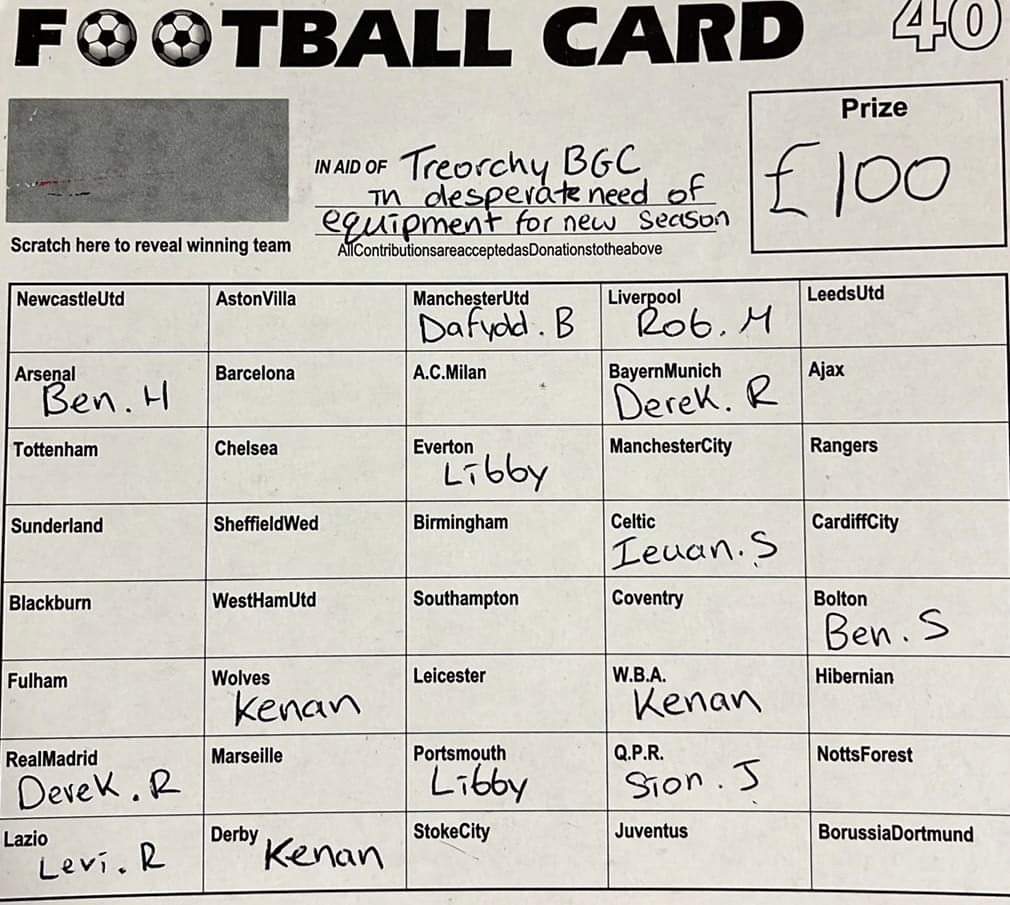 FOOTBALL CARD 40
Prize
£100
IN AID OF Treorchy BGC
In desperate need of
equipment for new season
AllContributionsareacceptedasDonationstotheabove
Scratch here to reveal winning team
NewcastleUtd AstonVilla ManchesterUtd Liverpool LeedsUtd
Dafydd. B Rob. M
Arsenal Barcelona A.C.Milan BayernMunich Ajax
Ben. H Derek. R
Tottenham Chelsea Everton ManchesterCity Rangers
Libby
Sunderland SheffieldWed Birmingham Celtic CardiffCity
Ieuan. S
Blackburn WestHamUtd Southampton Coventry Bolton
Ben. S
Fulham Wolves Leicester W.B.A. Hibernian
Kenan Kenan
RealMadrid Marseille Portsmouth Q.P.R. NottsForest
Derek. R Libby Sion. J
Lazio Derby StokeCity Juventus BorussiaDortmund
Levi. R Kenan